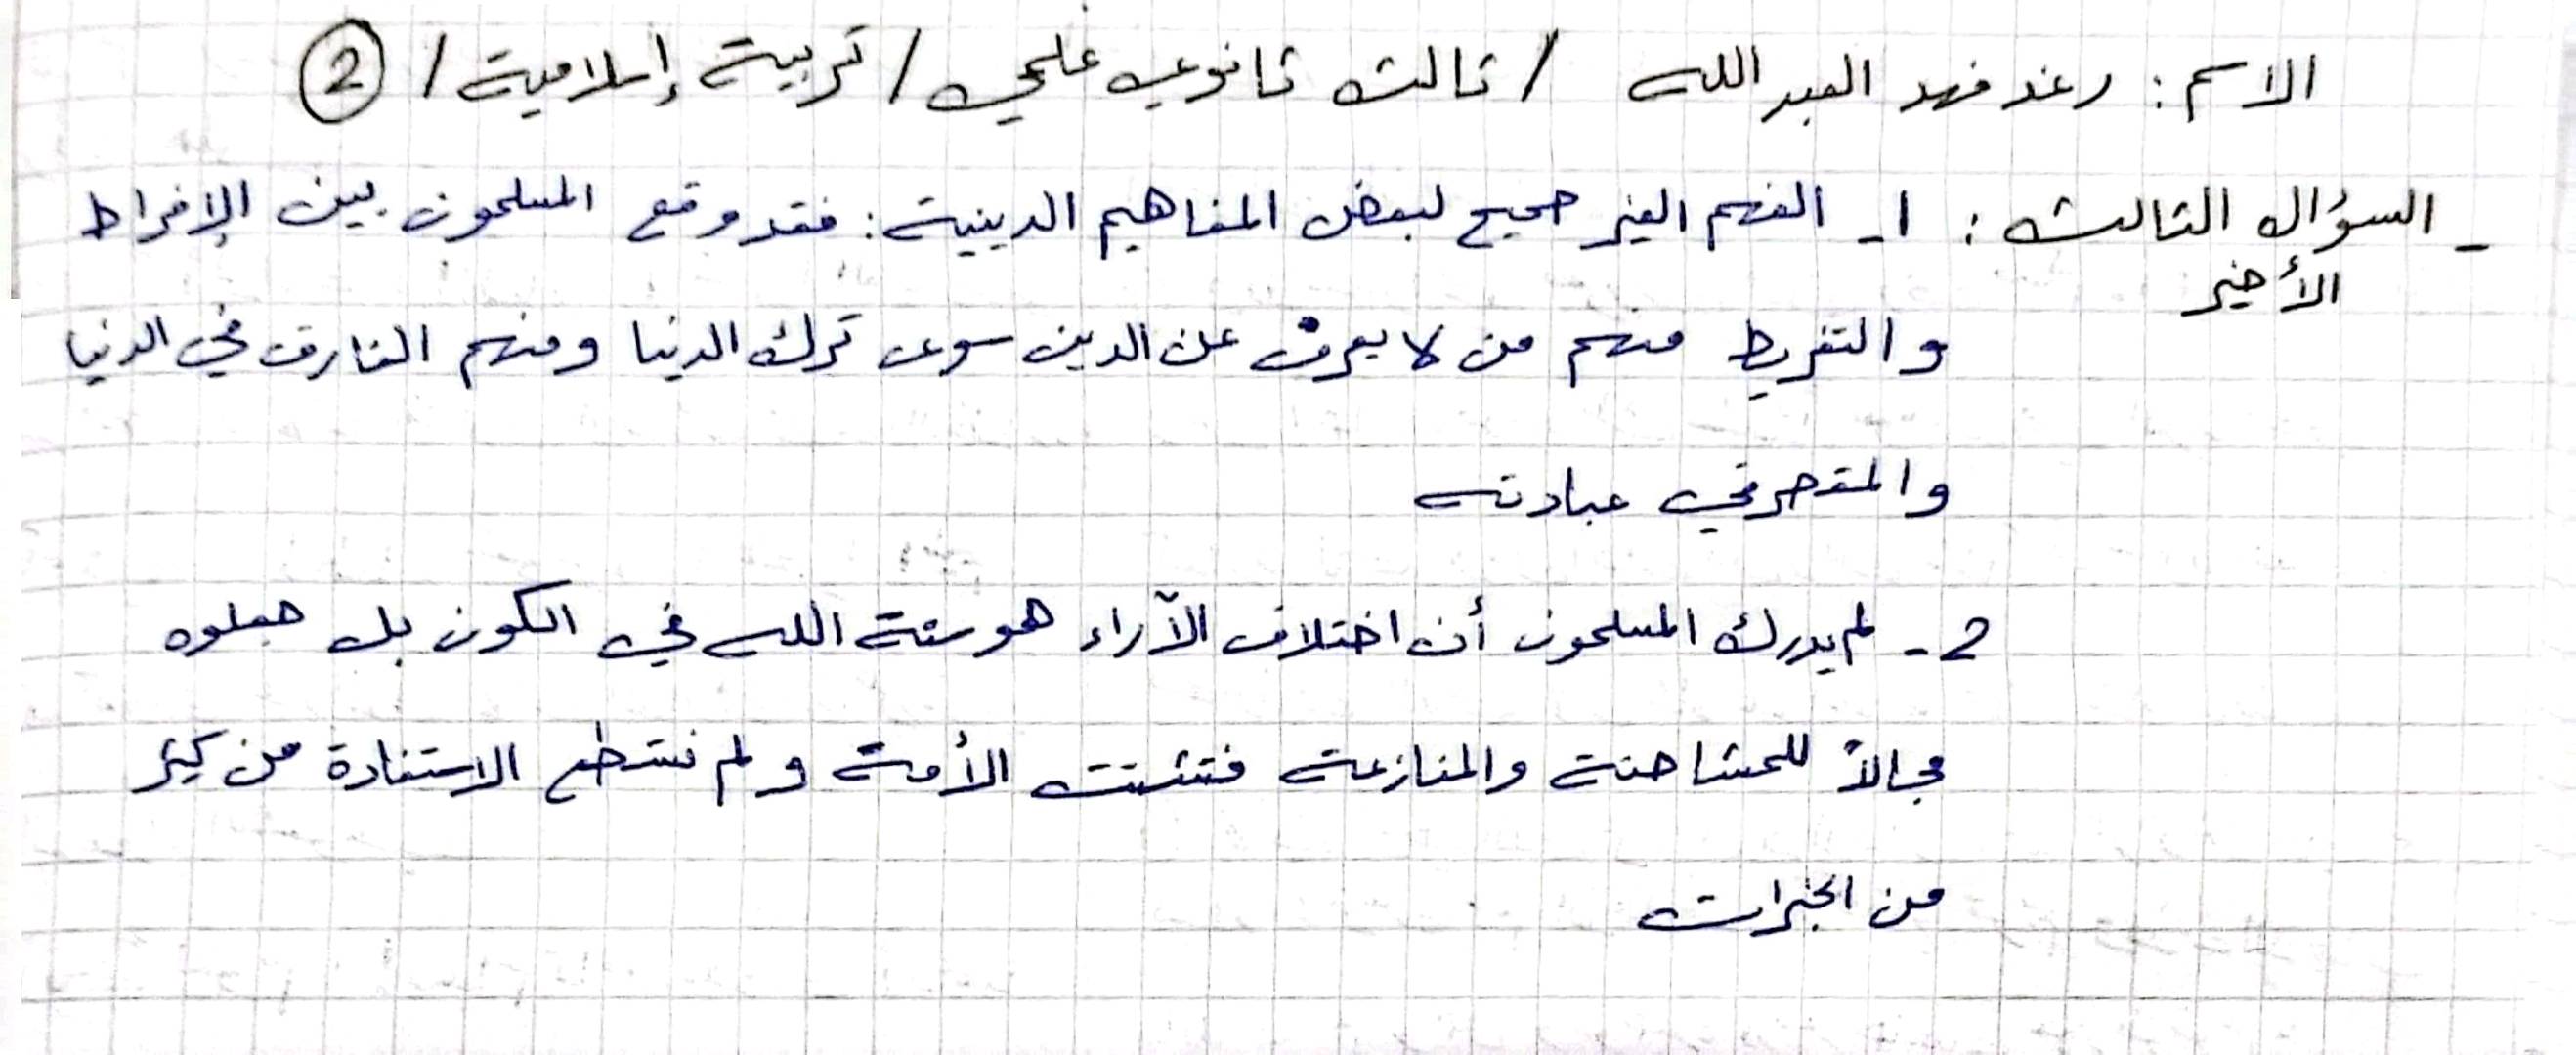 الاسم : رغد فهد العبد الله / ثالث ثانوي علمي / تربية إسلامية / 2
- السؤال الثالث : 1- الفهم الغير صحيح لبعض المفاهيم الدينية : فقد وقع المسلمون بين الإفراط
الأخير
والتفريط منهم من لا يعرف عن الدين سوى ترك الدنيا ومنهم الغارق في الدنيا
والمقصر في عبادته
2- لم يدرك المسلمون أن اختلاف الآراء هو سنة الله في الكون بل جعلوه
مجالاً للمشاحنة والمنازعة فتشتت الأمة ولم نستطع الاستفادة من كثير
من الخبرات